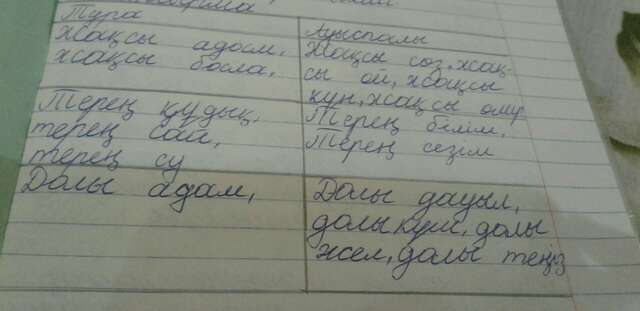 Тура
Ауыспалы
Жақсы адам,
жақсы бала,
Жақсы сөз, жақ-
сы ой, жақсы
күн, жақсы өмір
Терең құдық,
терең сай,
терең су
Терең білім,
Терең сезім
Долы адам,
Долы дауыл,
долы күш, долы
жел, долы теңіз